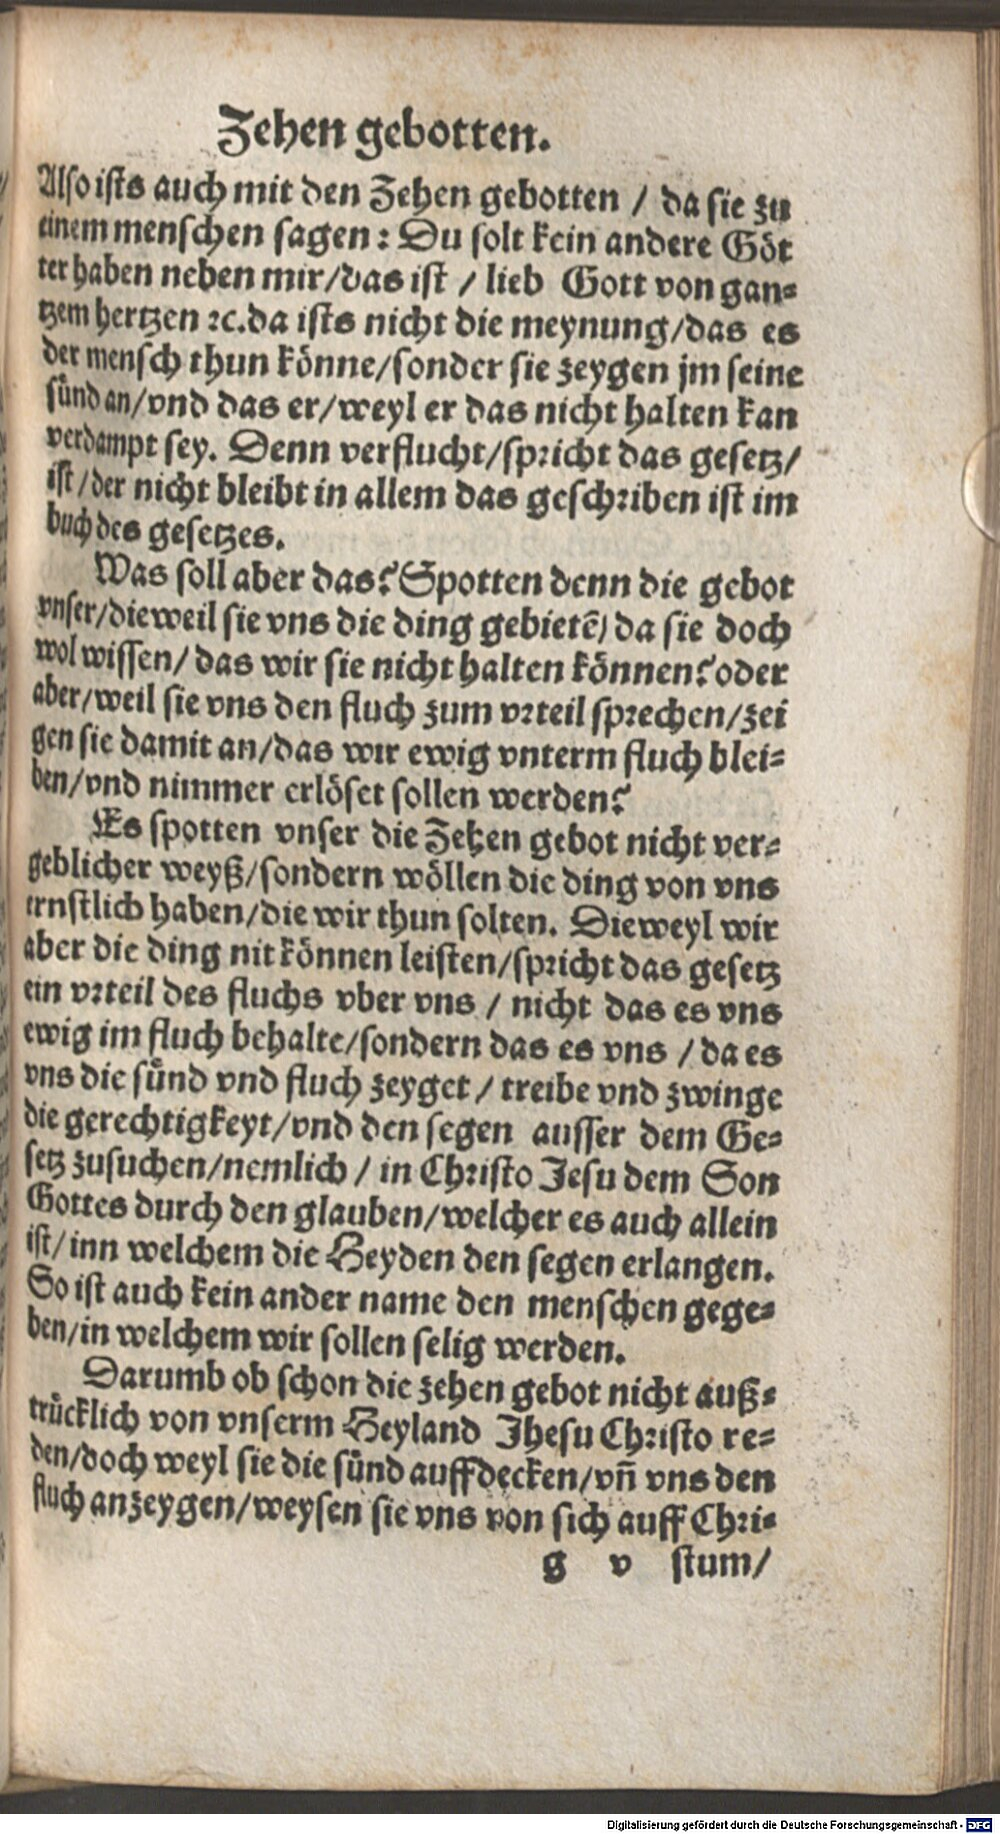 Zehen gebotten.
Also ists auch mit den Zehen gebotten / da sie zu
einem menschen sagen: Du solt kein andere Göt
ter haben neben mir/das ist / lieb Gott von gan-
tzem hertzen ꝛc.da ists nicht die meynung/das es
der mensch thun könne/sonder sie zeygen jm seine
sünd an/vnd das er/weyl er das nicht halten kan
verdampt sey. Denn verflucht/spricht das gesetz/
ist/der nicht bleibt in allem das geschriben ist im
buch des gesetzes.
Was soll aber das? Spotten denn die gebot
vnser/dieweil sie vns die ding gebietē/ da sie doch
wol wissen/ das wir sie nicht halten können? oder
aber/weil sie vns den fluch zum vrteil sprechen/zei
gen sie damit an/das wir ewig vnterm fluch blei-
ben/vnd nimmer erlöset sollen werden?
Es spotten vnser die Zehen gebot nicht ver-
geblicher weyß/sondern wöllen die ding von vns
ernstlich haben/die wir thun solten. Dieweyl wir
aber die ding nit können leisten/spricht das gesetz
ein vrteil des fluchs vber vns / nicht das es vns
ewig im fluch behalte/sondern das es vns / da es
vns die sünd vnd fluch zeyget / treibe vnd zwinge
die gerechtigkeyt/vnd den segen ausser dem Ge-
setz zusuchen/nemlich / in Christo Jesu dem Son
Gottes durch den glauben/welcher es auch allein
ist/ inn welchem die Heyden den segen erlangen.
So ist auch kein ander name den menschen gege-
ben/in welchem wir sollen selig werden.
Darumb ob schon die zehen gebot nicht auß-
trücklich von vnserm Heyland Jhesu Christo re-
den/doch weyl sie die sünd auffdecken/vñ vns den
fluch anzeygen/weysen sie vns von sich auff Chri-
g v stum/
Digitalisierung gefördert durch die Deutsche Forschungsgemeinschaft - DFG